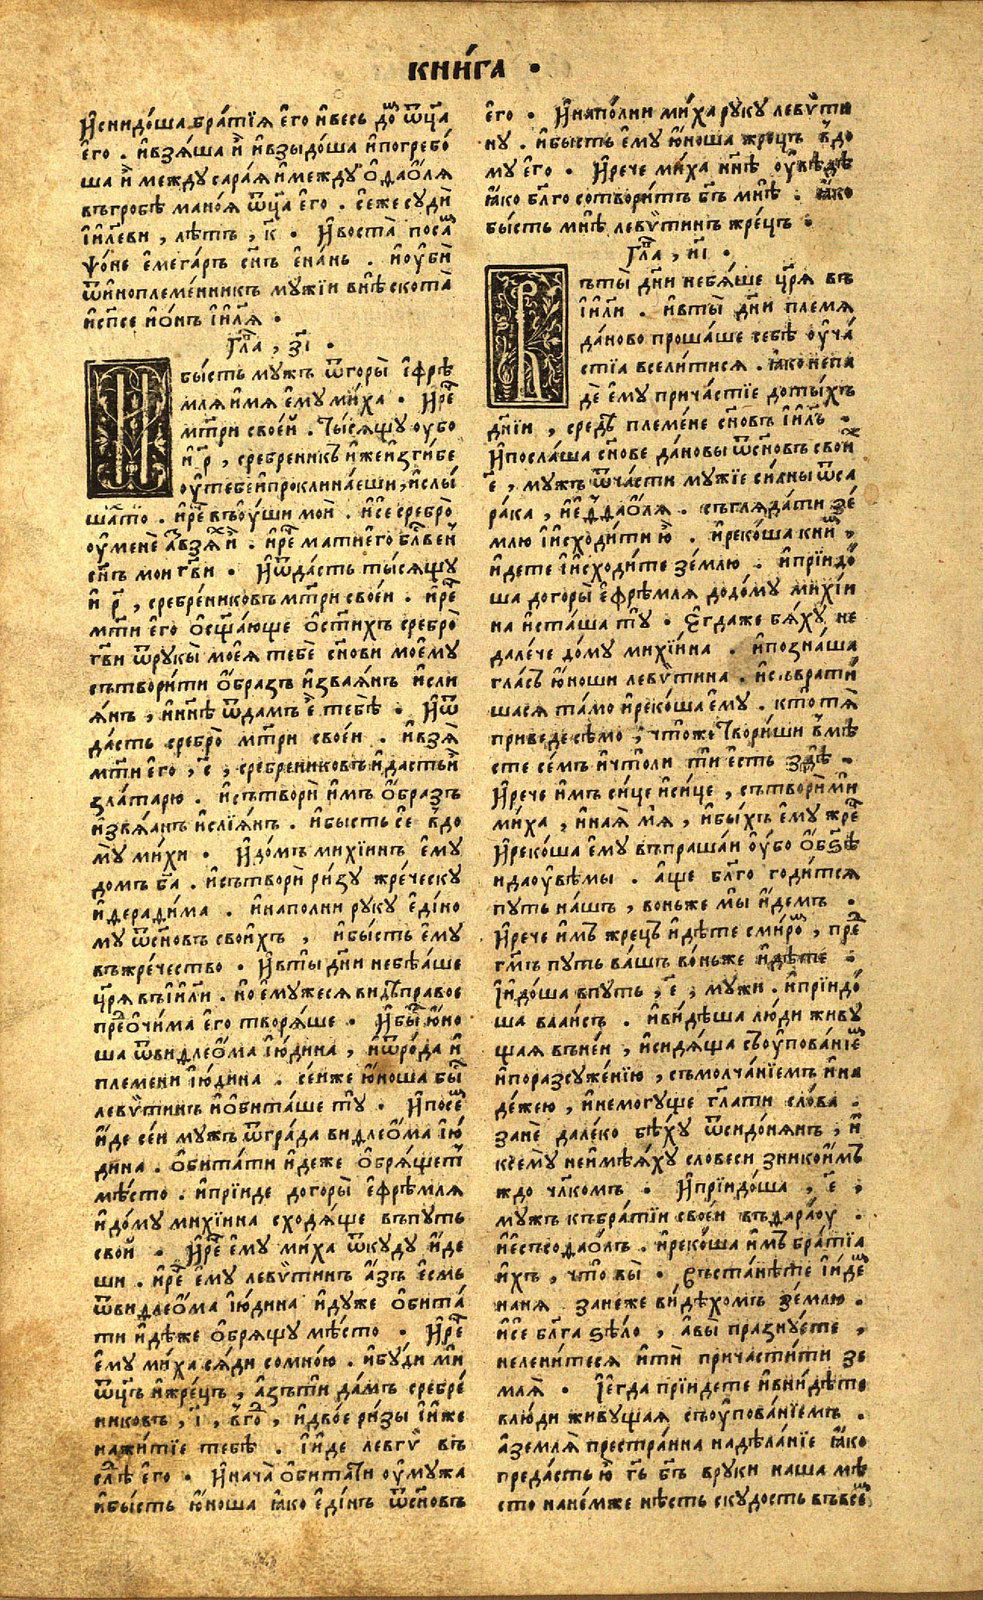 КНИ́ГА ·
И҆снидо́ша бра́тїѧ є҆го̀ и҆весь до́ⷨ ѿц҃а
є҆го . и҆взѧ́ша и҆̀ и҆взыдо́ша и҆погребо́
ша и҆̀ между сара́ѧ и҆между̀ ѻ҆даѻ́лѧ
въгробѣ мано́ѧ ѿц҃а є҆го . се́же суди̏
і҆и҃леви , лѣ́тъ , к҃ · И҆воста̀ посаⷨ
ѱо́не є҆мега́ръ сн҃ъ є҆на́нь . и҆оу҆би̏
ѿи҆ноплеме́нникъ мужі́и внѣ̀ скота̀
и҆сп҃се и҆ѻ́нъ і҆и҃лѧ ·
Гл҃а , з҃і ·
бы́сть мужъ ѿгоры̀ є҆фрѣ́
млѧ и҆мѧ є҆му ми́ха · И҆реⷱ
мт҃ри свое́и . Ты́сѧщу оу҆бо
и҆ р҃ , сре́бреникъ и҆же и҆зги́бе
оу҆тебе и҆проклина́еши , и҆слы́
ша́то . и҆реⷱ въѻу҆́ши мои̏ . и҆се сребро̀
оу҆мене̏ а҆́зъ взѧⷯ и҆̀ . и҆реⷱ мати є҆го бл҃ве́и
сн҃ъ мои гв҃и · И҆ѿда́сть ты́сѧщу
и҆ р҃ , сре́брениковъ мт҃ри свое́и . и҆реⷱ
мт҃и є҆го ѻ҆сщ҃а́юще ѻ҆сти́хъ сребро̀
гв҃и ѿрукы̀ мое́ѧ тебѐ сн҃ови мое́му
сътвори́ти ѻ҆́бразъ и҆зва́ѧнъ и҆сли
ѧ́нъ , и҆нн҃ѣ ѿда́мъ є҆̀ тебѣ̀ · И҆ѿ
да́сть сребро̀ мт҃ри свое́и . и҆взѧ̀
мт҃и є҆го , с҃ , сре́брениковъ и҆да́сть и҆̀
зла́тарю . и҆сътвори̏ и҆мъ ѻ҆́бразъ
и҆звѧ́анъ и҆слїѧ́нъ . и҆бы́сть се̏ в̾до
му̀ ми́хи · И҆до́мъ михі́инъ є҆му
домъ б҃а . и҆сътвори̏ ри́зу жре́ческу
и҆дерадима . и҆наполни руку є҆ди́но
му ѿсн҃овъ свои́хъ , и҆бы́сть є҆му
въжре́чество · И҆вты̀ дн҃и небѣ́аше
цр҃ѧ въі҆и҃ли . но є҆мужесѧ видѣ̀ пра́вое
преⷣѻчи́ма є҆го творѧ́ше · И҆быⷭ ю҆но
ша ѿвидлеѻ́ма і҆ю́дина , и҆ѿро́да и҆
племени і҆ю́дина . се́иже ю҆́ноша быⷭ
левѵ́тинъ и҆ѻ҆бита́ше тꙋ̀ · И҆посеⷨ
и҆́де се́и мужъ ѿгра́да видлеѻ́ма і҆ю́
дина . ѻ҆бита́ти и҆деже ѻ҆брѧ́щетъ
мѣ́сто . и҆прїи́де догоры̀ є҆фрѣ́млѧ
и҆до́му михі́ина сходѧ́ще въпу́ть
свои̏ · И҆реⷱ є҆му ми́ха ѿкуду и҆́де
ши . и҆реⷱ є҆му левѵ́тинъ а҆́зъ є҆смь
ѿвидлеѻ́ма і҆ю́дина и҆ду́же ѻ҆бита́
ти и҆дѣ́же ѻ҆брѧщу мѣ́сто · И҆реⷱ
є҆му ми́ха сѧ́ди сомно́ю . и҆бу́ди ми
ѿц҃ъ и҆жре́цъ , а҆́зъти да́мъ сребре́
никовъ , і҃ , в̾гоⷣ , и҆дво́е ри́зы і҆и҆же
нажи́тїе тебѣ̀ . і҆и́де левгѵ̀ въ
слѣ̀ⷣ є҆го · И҆нача̀ ѻ҆бита́ти оу҆му́жа
и҆бы́сть ю҆́ноша ꙗ҆ко є҆ди́нъ ѿсн҃овъ
є҆го · И҆напо́лни ми́ха ру́ку левѵ́ти
ну . и҆бы́сть є҆му ю҆́ноша жрецъ в̾до
му є҆го · И҆рече ми́ха нн҃ѣ оу҆вѣ́дѣ
ꙗ҆ко бл҃го сотвори́тъ бг҃ъ мнѣ̀ . ꙗ҆ко
бы́сть мнѣ̀ левѵ́тинъ жре́цъ ·
Гл҃а , и҃і ·
ъты̀ дн҃и небѧ́ше цр҃ѧ въ
і҆и҃ли . и҆вты̀ дн҃и племѧ
да́ново проша́ше себѣ̀ оу҆ча́
стїа всели́тисѧ . ꙗ҆ко непа
дѐ є҆му прича́стїе доты́хъ
дн҃іи , средѣ̀ племе́не сн҃овъ і҆и҃лъ .
И҆посла́ша сн҃ове да́новы ѿсн҃овъ свои́ⷯ
е҃ , мужъ ѿча́сти мужїе си́лны ѿса
ра́ка , и҆є҆дда́ѻлѧ . съглѧда́ти зе́
млю і҆и҆сходи́ти ю҆̀ . и҆реко́ша к ниⷨ ,
и҆дете і҆и҆сходи́те зе́млю . и҆прїидо́
ша догоры̀ є҆фрѣ́млѧ додо́му михі́и
на и҆ста́ша тꙋ̀ · Є҆гда́же бѧ́ху не
дале́че до́му михі́ина . и҆позна́ша
гла́съ ю҆ноши левѵ́тина . и҆съврати́
шасѧ та́мо и҆реко́ша є҆му . кто тѧ̀
приведе сѣ́мо , что́же твори́ши в̾мѣ́
сте се́мъ и҆что́ли ти є҆сть здѣ̀ .
И҆рече и҆мъ си́це и҆си́це , сътвори́ ми
ми́ха , и҆наѧ̀ мѧ , и҆бы́хъ є҆му жреⷰ
И҆реко́ша є҆му въпраша́и оу҆бо ѻ҆бз҃ѣ
и҆даоу҆вѣ́мы . а҆ще бл҃го годи́тсѧ
путь на́шъ , воньже мы̀ и҆́демъ .
И҆рече и҆мъ жре́цъ и҆дѣ́те сми́роⷨ , преⷣ
гм҃ъ путь ва́шъ во́ньже и҆дѣ́те .
І҆идо́ша впуть , е҃ , мужи . и҆прїидо́
ша вали́съ . и҆ви́дѣша лю́ди живу
щаѧ въне́и , и҆сидѧ́ща съоу҆пова́нїеⷨ
и҆поразсуже́нїю , съмолча́нїемъ и҆на
де́жею , и҆немогуще гл҃ати сло́ва .
занѐ дале́ко бѣ́ху ѿсидо́нѧнъ , и҆
ксе́му неимѣ́ѧху словеси зникои́мъ
ждо чл҃комъ · И҆прїидо́ша , е҃ ,
мужъ къбра́тїи свое́и въдара́оу .
и҆є҆съѻдаѻ́лъ . и҆реко́ша и҆мъ бра́тїа
и҆́хъ , что̀ вы̀ · Въста́нѣте і҆и҆деⷨ
наня зане́же ви́дѣхомъ зе́млю .
и҆сѐ бл҃га ѕѣ́ло , а҆вы̀ празну́ете ,
нелени́тесѧ и҆ти̏ причасти́ти зе
млѧ̀ · І҆егда прїи́дете и҆вни́дѣте
влю́ди живу́щаѧ съоу҆пова́нїемъ .
а҆землѧ̀ престра́нна надѣла́нїе ꙗ҆ко
преда́сть ю҆̀ гь҃ бг҃ъ вруки на́ша мѣ́
сто нане́мже нѣ́сть скудость въвсеⷨ